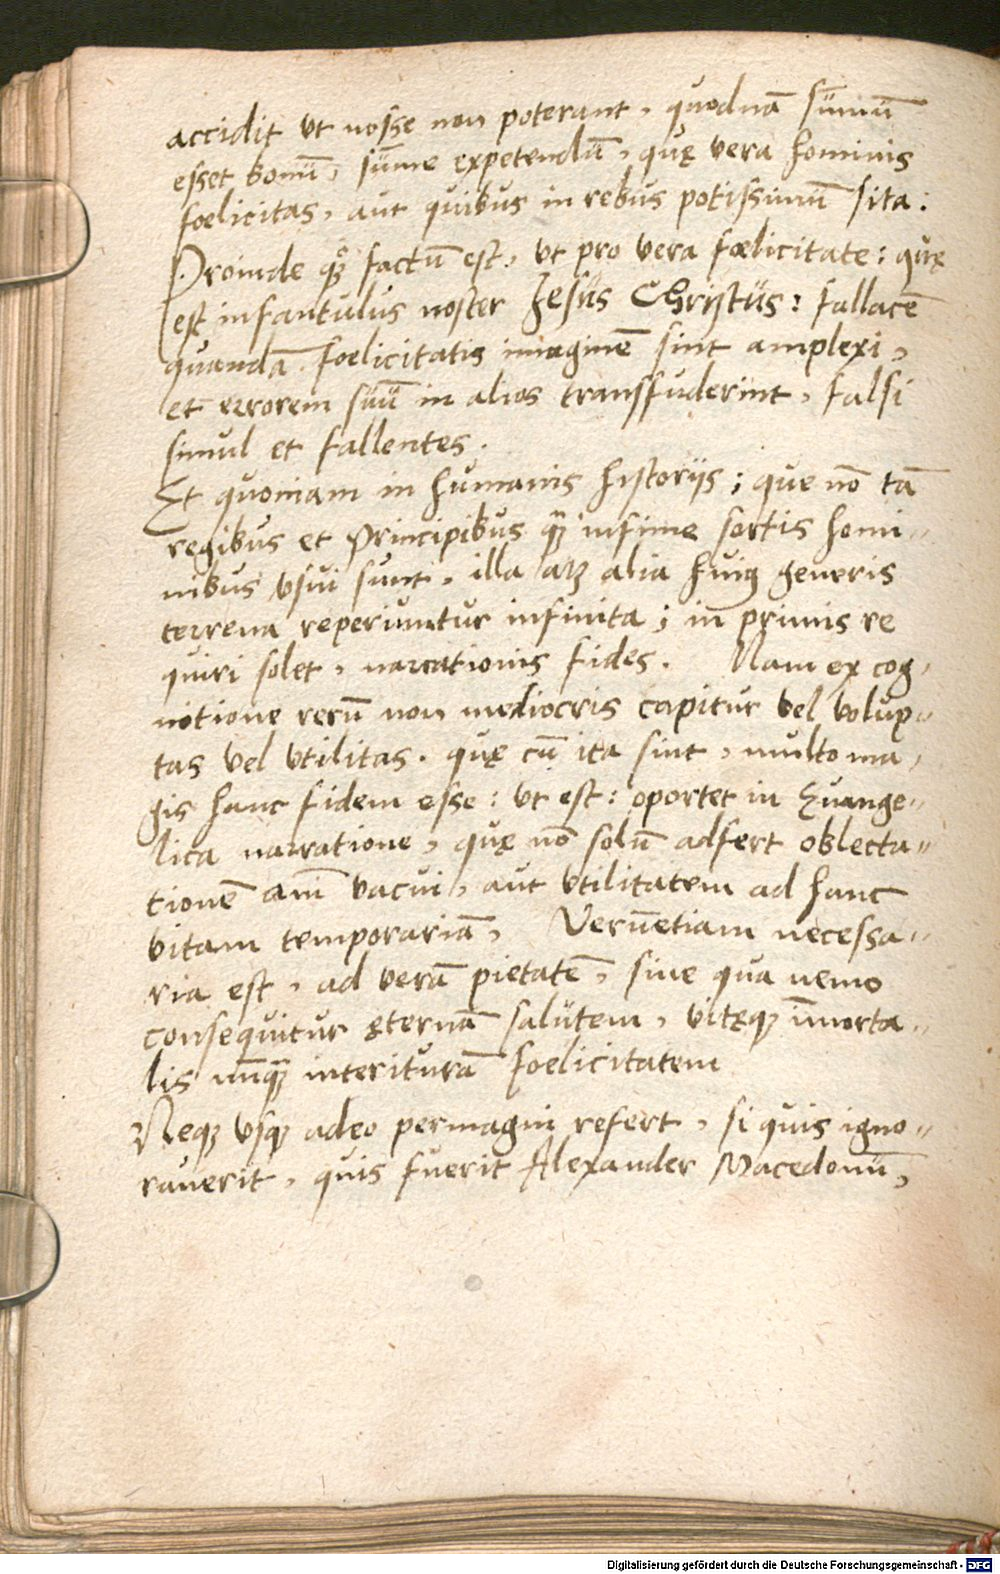 accidit vt nosse non poterant, quodnā sum̄ū
esset bonū, sum̄e expetendū, quę vera hominis
foelicitas, aut quibus in rebus potissimū sita:
Proinde factū est, vt pro vera foelicitate: quę
est infantulus noster Jesus Christus: fallacē
quandā foelicitatis imaginē sint amplexi,
et errorem suū in alios transfuderint, falsi
simul et fallentes.
Et quoniam in humanis historijs; que nō tā
regibus et Principibus q̄ infime sortis homi-
nibus vsui sunt, illa atq; alia huiq generis
terrena reperiuntur infinita; in primis re
quiri solet, narrationis fides. Nam ex cog-
nitione rerū non mediocris capitur vel volup-
tas vel vtilitas. quę cū ita sint, multo ma-
gis hanc fidem esse: vt est: oportet in Euange-
lica narratione, quę nō solū adfert oblecta-
tionē anī vacui, aut vtilitatem ad hanc
vitam temporariā, Verūetiam necessa-
ria est, ad verā pietatē, sine qua nemo
consequitur ęternā salutem, vitęq; im̄orta-
lis nūq̄ interiturā foelicitatem
Neq; vsq; adeo permagni refert, si quis igno-
rauerit, quis fuerit Alexander Macedonū,
Digitalisierung gefördert durch die Deutsche Forschungsgemeinschaft - DFG